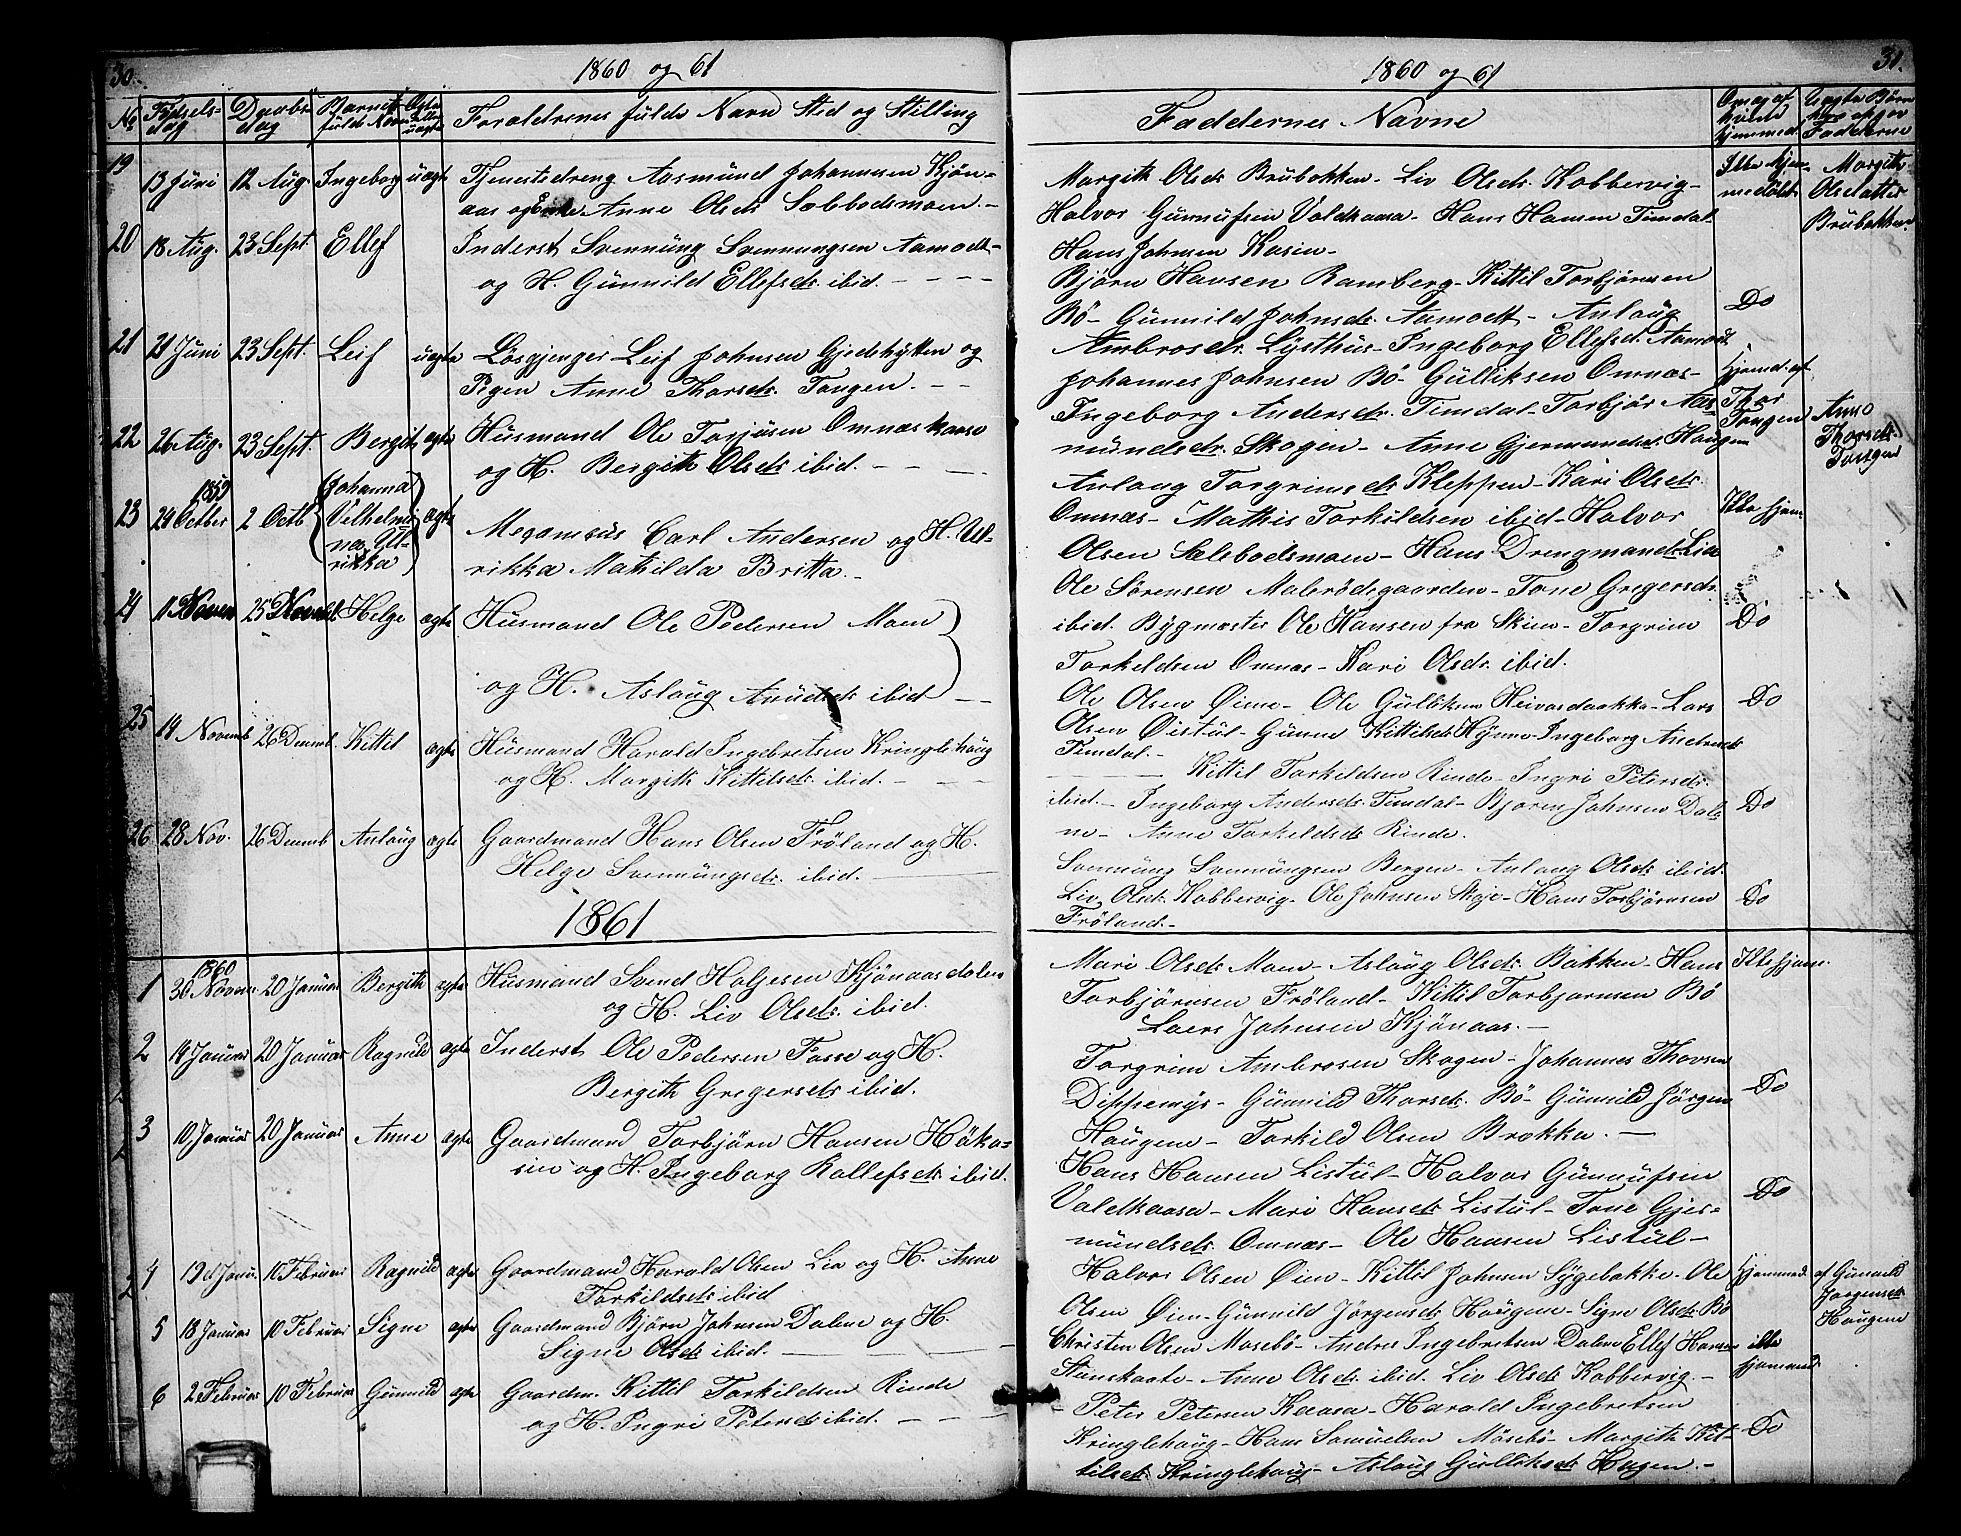 30.
1860 og 61
No Fødsels-dag Daabs dag Barnets fulde Navn Ægte eller uægte Forældrenes fulde Navn Sted og Stilling
19 13 Juni 12 Aug. Ingeborg uægte Tjenestedreng Aasmund Johannesen Kjøn-
aas og Enke Anne Olsdr. Sælebodsmoen.-
20 18 Aug. 23 Sept. Ellef Inderst Svennung Svennungsen Aamodt
og H. Gunnild Ellefsdr. ibid. - - -
21 21 Juni 23 Sept. Leif uægte Løsgjenger Leif Johnsen Gjedehytten og
Pigen Anne Thorsdr. Tangen. - -
22 26 Aug. 23 Sept. Bergith ægte Husmand Ole Torjusen Omnæskaasa
og H. Bergith Olsdr. ibid. - - -
23 1859 24 Octber 2 Octb (Johanna Vilhelmi-
na, Ul-
rikka) ægte Carl Andersen og H. Ul-
rikka Mathilda Britta. -
24 1 Novem 25 Novemb. Helge ægte Husmand Ole Pedersen Moen
og H. Aslaug Anundsdr. ibid -
25 14 Novemb 26 Decemb. Kittil ægte Husmand Harald Ingebretsen Kringlehaug
og H. Margith Kittilsdr. ibid. - -
26 28 Nov. 26 Decemb Anlaug ægte Gaardmand Hans Olsen Frøland og H.
Helge Svennungsdr. ibid.
1861
1 1860 30 Novem. 20 Januar Bergith ægte Husmand Svend Holjesen Kjønaasdalen
og H. Liv Olsdr. ibid.
2 14 Januar 20 Januar Ragnild ægte Inderst Ole Pedersen Fosse og H.
Bergith Gregersdr. ibid.
3 10 Januar 20 Januar Anne ægte Gaardmand Torbjørn Hansen Høka-
sin og H. Ingeborg Rollefsdr. ibid.
4 19d Janu. 10 Februar Ragnild ægte Gaardmand Harald Olsen Lia og H. Anne
Torkildsdr. ibid
5 18 Januar 10 Februar Signe ægte Gaardmand Bjørn Johnsen Dalene og H.
Signe Olsdr. ibid.
6 2 Februar 10 Februar Gunnild ægte Gaardm. Kittil Torkildsen Rinde
og H. Ingri Petersdr. ibid. - - -
31.
1860 og 61
Faddernes Navne
Margith Olsdr. Brubakken - Liv Olsdr. Kobbervig - Ikke hjem- Margith
Halvor Gunnufsen Valdkaasa - Hans Hansen Timdal. medøbt Olsdatter
Hans Johnsen Kasin - Brubakken.
Bjørn Hansen Ramberg - Kittil Torbjørnsen
Bø - Gunnild Johnsdr. Aamodt - Anlaug Do
Ambrosdr. Lysthus - Ingeborg Ellefsd. Aamodt
Johannes Johnsen Bø - Gulliksen Omnæs - hjemd. af
Ingeborg Andersdr. Timdal - Torbjør Aas- Thor Anne
mundsdr. Skogen - Anne Gjermundsdr. Haugen Tangen Thorsdr. Tangen
Anlaug Torgrimsdr. Kleppen - Kari Olsdr.
Omnæs - Mathis Torkildsen ibid - Halvor Ikke hjem.
Olsen Sælebodsmoen - Hans Drengmandsdr. Lia
Ole Sørensen Malerødegaarden - Tone Gregersdr.
ibid. Bygmester Ole Hansen fra Skien - Torgrim Do
Torkildsen Omnæs - Kari Olsdr. ibid.
Ole Olsen Øine - Ole Gulliksen Heivasdaakka - Lars Do
Olsen Øistul - Gunne Kittilsdr. Ingeborg Andersdr.
Timdal. -
Kittil Torkildsen Rinde - Ingri Petersdr.
ibid. - Ingeborg Andersdr. Timdal - Bjoren Johnsen Dale- Do
ne - Anne Torkildsdr. Rinde.
Svennung Svennungsen Bergen - Anlaug Olsdr. ibid.
Liv Olsdr. Kobbervig - Ole Johnsen Skoje - Hans Torbjørnsen Do
Frøland. -
Mari Olsdr. Moen - Aslaug Olsdr. Bakken - Hans Ikke hjem.
Torbjørnsen Frøland - Kittil Torbjørnsen Bø
Laers Johnsen Kjønaas. -
Torgrim Ambrosen Skogen - Johannes Thovsen
Dippemyr - Gunnild Thorsdr. Bø - Gunnild Jørgen Do
Haugene - Torkild Olsen Brekka. -
Hans Hansen Listul - Halvor Gunnufsen
Valdkaasa - Mari Hansdr. Listul - Tone Gjer- Do
mundsdr. Omnæs - Ole Hansen Listul -
Halvor Olsen Øine - Kittil Johnsen Sygebakke - Ole hjemmed. af Gunnild
Olsen Øien - Gunnild Jørgensdr. Haugene - Signe Olsdr. Bø Jørgensdr. Haugene
Christen Olsen Mosebø - Andres Ingebretsen Dalene Ellef Hansen ikke
Stenskaate - Anne Olsdr. ibid. Liv Olsdr. Kobbervig. - hjemmed.
- Peter Petersen Kaasa - Harald Ingebretsen
Kringlehaug - Hans Samuelsen Mosebø - Margith Kit- Do
tilsdr. Kringlehaug - Aslaug Gulliksdr. Hagen. -